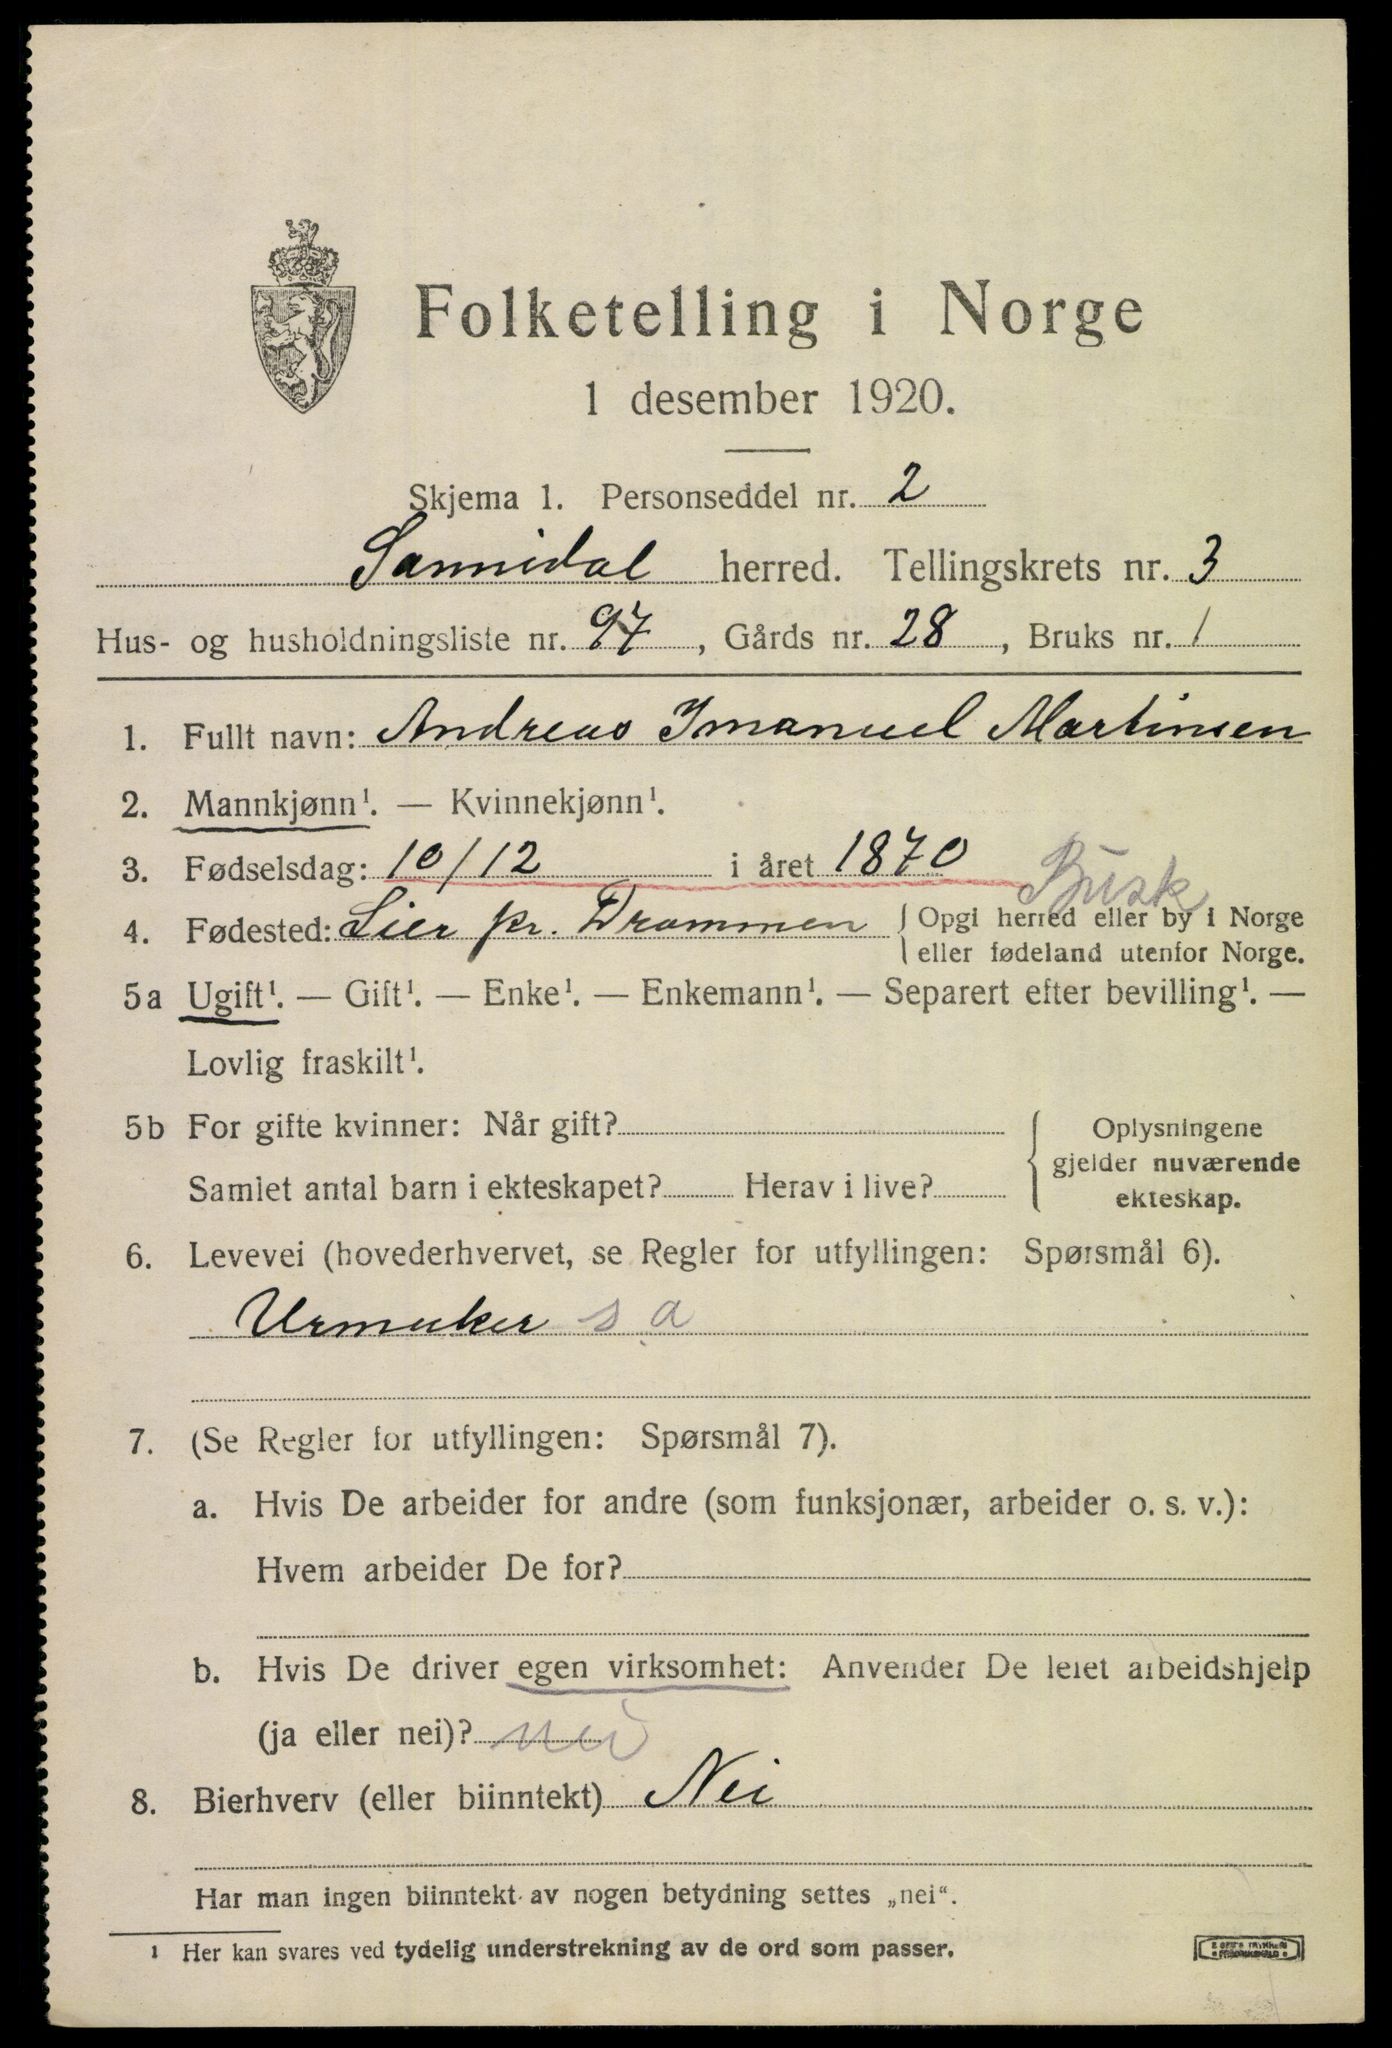 Folketelling i Norge
1 desember 1920.
Skjema 1. Personseddel nr. 2
Sannidal herred. Tellingskrets nr. 3
Hus- og husholdningsliste nr. 97, Gårds nr. 28, Bruks nr. 1
1. Fullt navn: Andreas Imanuel Martinsen
2. Mannkjønn¹. — Kvinnekjønn¹.
3. Fødselsdag: 10/12 i året 1870 Busk
4. Fødested: Lier pr. Drammen { Opgi herred eller by i Norge
eller fødeland utenfor Norge.
5a Ugift¹. — Gift¹. — Enke¹. — Enkemann¹. — Separert efter bevilling¹. —
Lovlig fraskilt¹.
5b For gifte kvinner: Når gift?
Samlet antal barn i ekteskapet? Herav i live?
Oplysningene
gjelder nuværende
ekteskap.
6. Levevei (hovederhvervet, se Regler for utfyllingen: Spørsmål 6).
Urmaker s a
7. (Se Regler for utfyllingen: Spørsmål 7).
a. Hvis De arbeider for andre (som funksjonær, arbeider o. s. v.):
Hvem arbeider De for?
b. Hvis De driver egen virksomhet: Anvender De leiet arbeidshjelp
(ja eller nei)? nei
8. Bierhverv (eller biinntekt) Nei
Har man ingen biinntekt av nogen betydning settes „nei“.
¹ Her kan svares ved tydelig understrekning av de ord som passer.